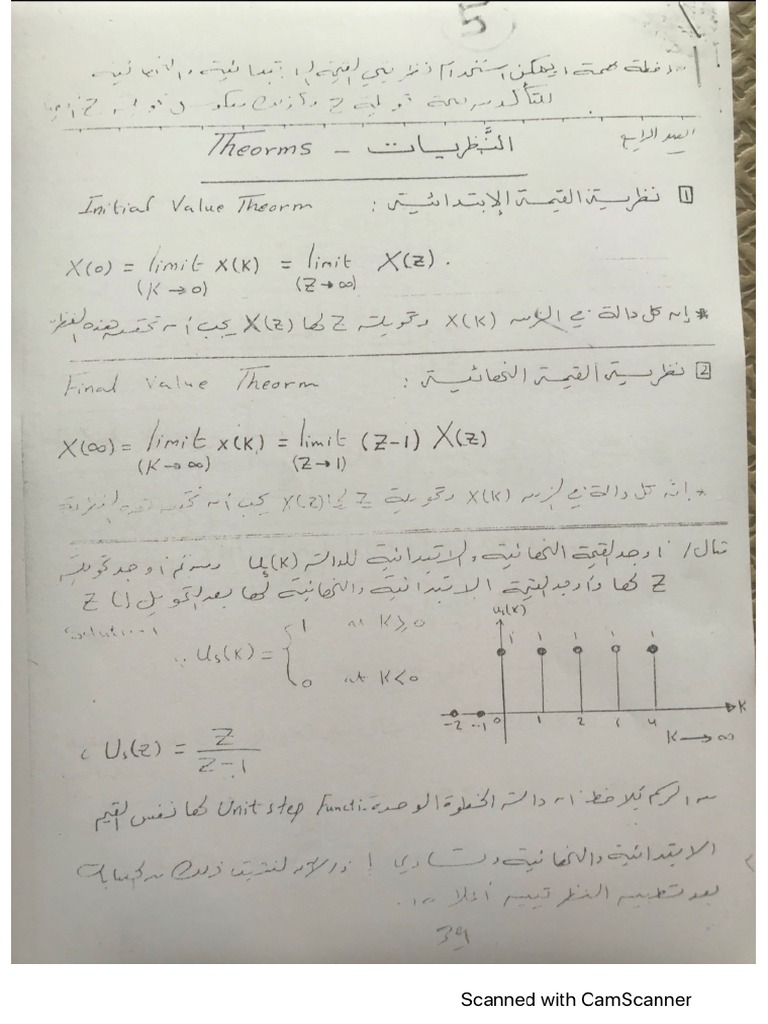 5
مهمة يمكن استخدام نظريتي القيمة الابتدائية والنهائية
للتأكد من صحة تحويلة Z
الصف الرابع
النَّظريات - Theorms
1 نظرية القيمة الإبتدائية : Initial Value Theorm
X(0) = limit X(K) = limit X(Z).
(K→0) (Z→∞)
* إن كل دالة في الزمن X(K) وتحويلة Z لها X(Z) يجب أن تحقق هذه النظرية
2 نظرية القيمة النهائية : Final Value Theorm
X(∞) = limit X(K) = limit (Z-1) X(Z)
(K→∞) (Z→1)
* إن كل دالة في الزمن X(K) وتحويلة Z لها X(Z) يجب أن تحقق هذه النظرية
مثال/ أوجد القيمة النهائية والابتدائية للدالة (K) ومن ثم أوجد تحويلة
Z لها وأوجد القيمة الابتدائية والنهائية لها بعد التحويل Z
Solution
Us(K) = { 1 at K⩾0
0 at K<0
u1(K)
1 1 1 1 1
-2 -1 0 1 2 4 K
K→∞
Us(Z) = Z / Z-1
من الرسم نلاحظ ان دالة الخطوة الوحدة Unit step Function لها نفس القيم
الابتدائية والنهائية وتساوي 1 والآن ذلك من
بعد تطبيق النظريتين أعلاه
39
Scanned with CamScanner